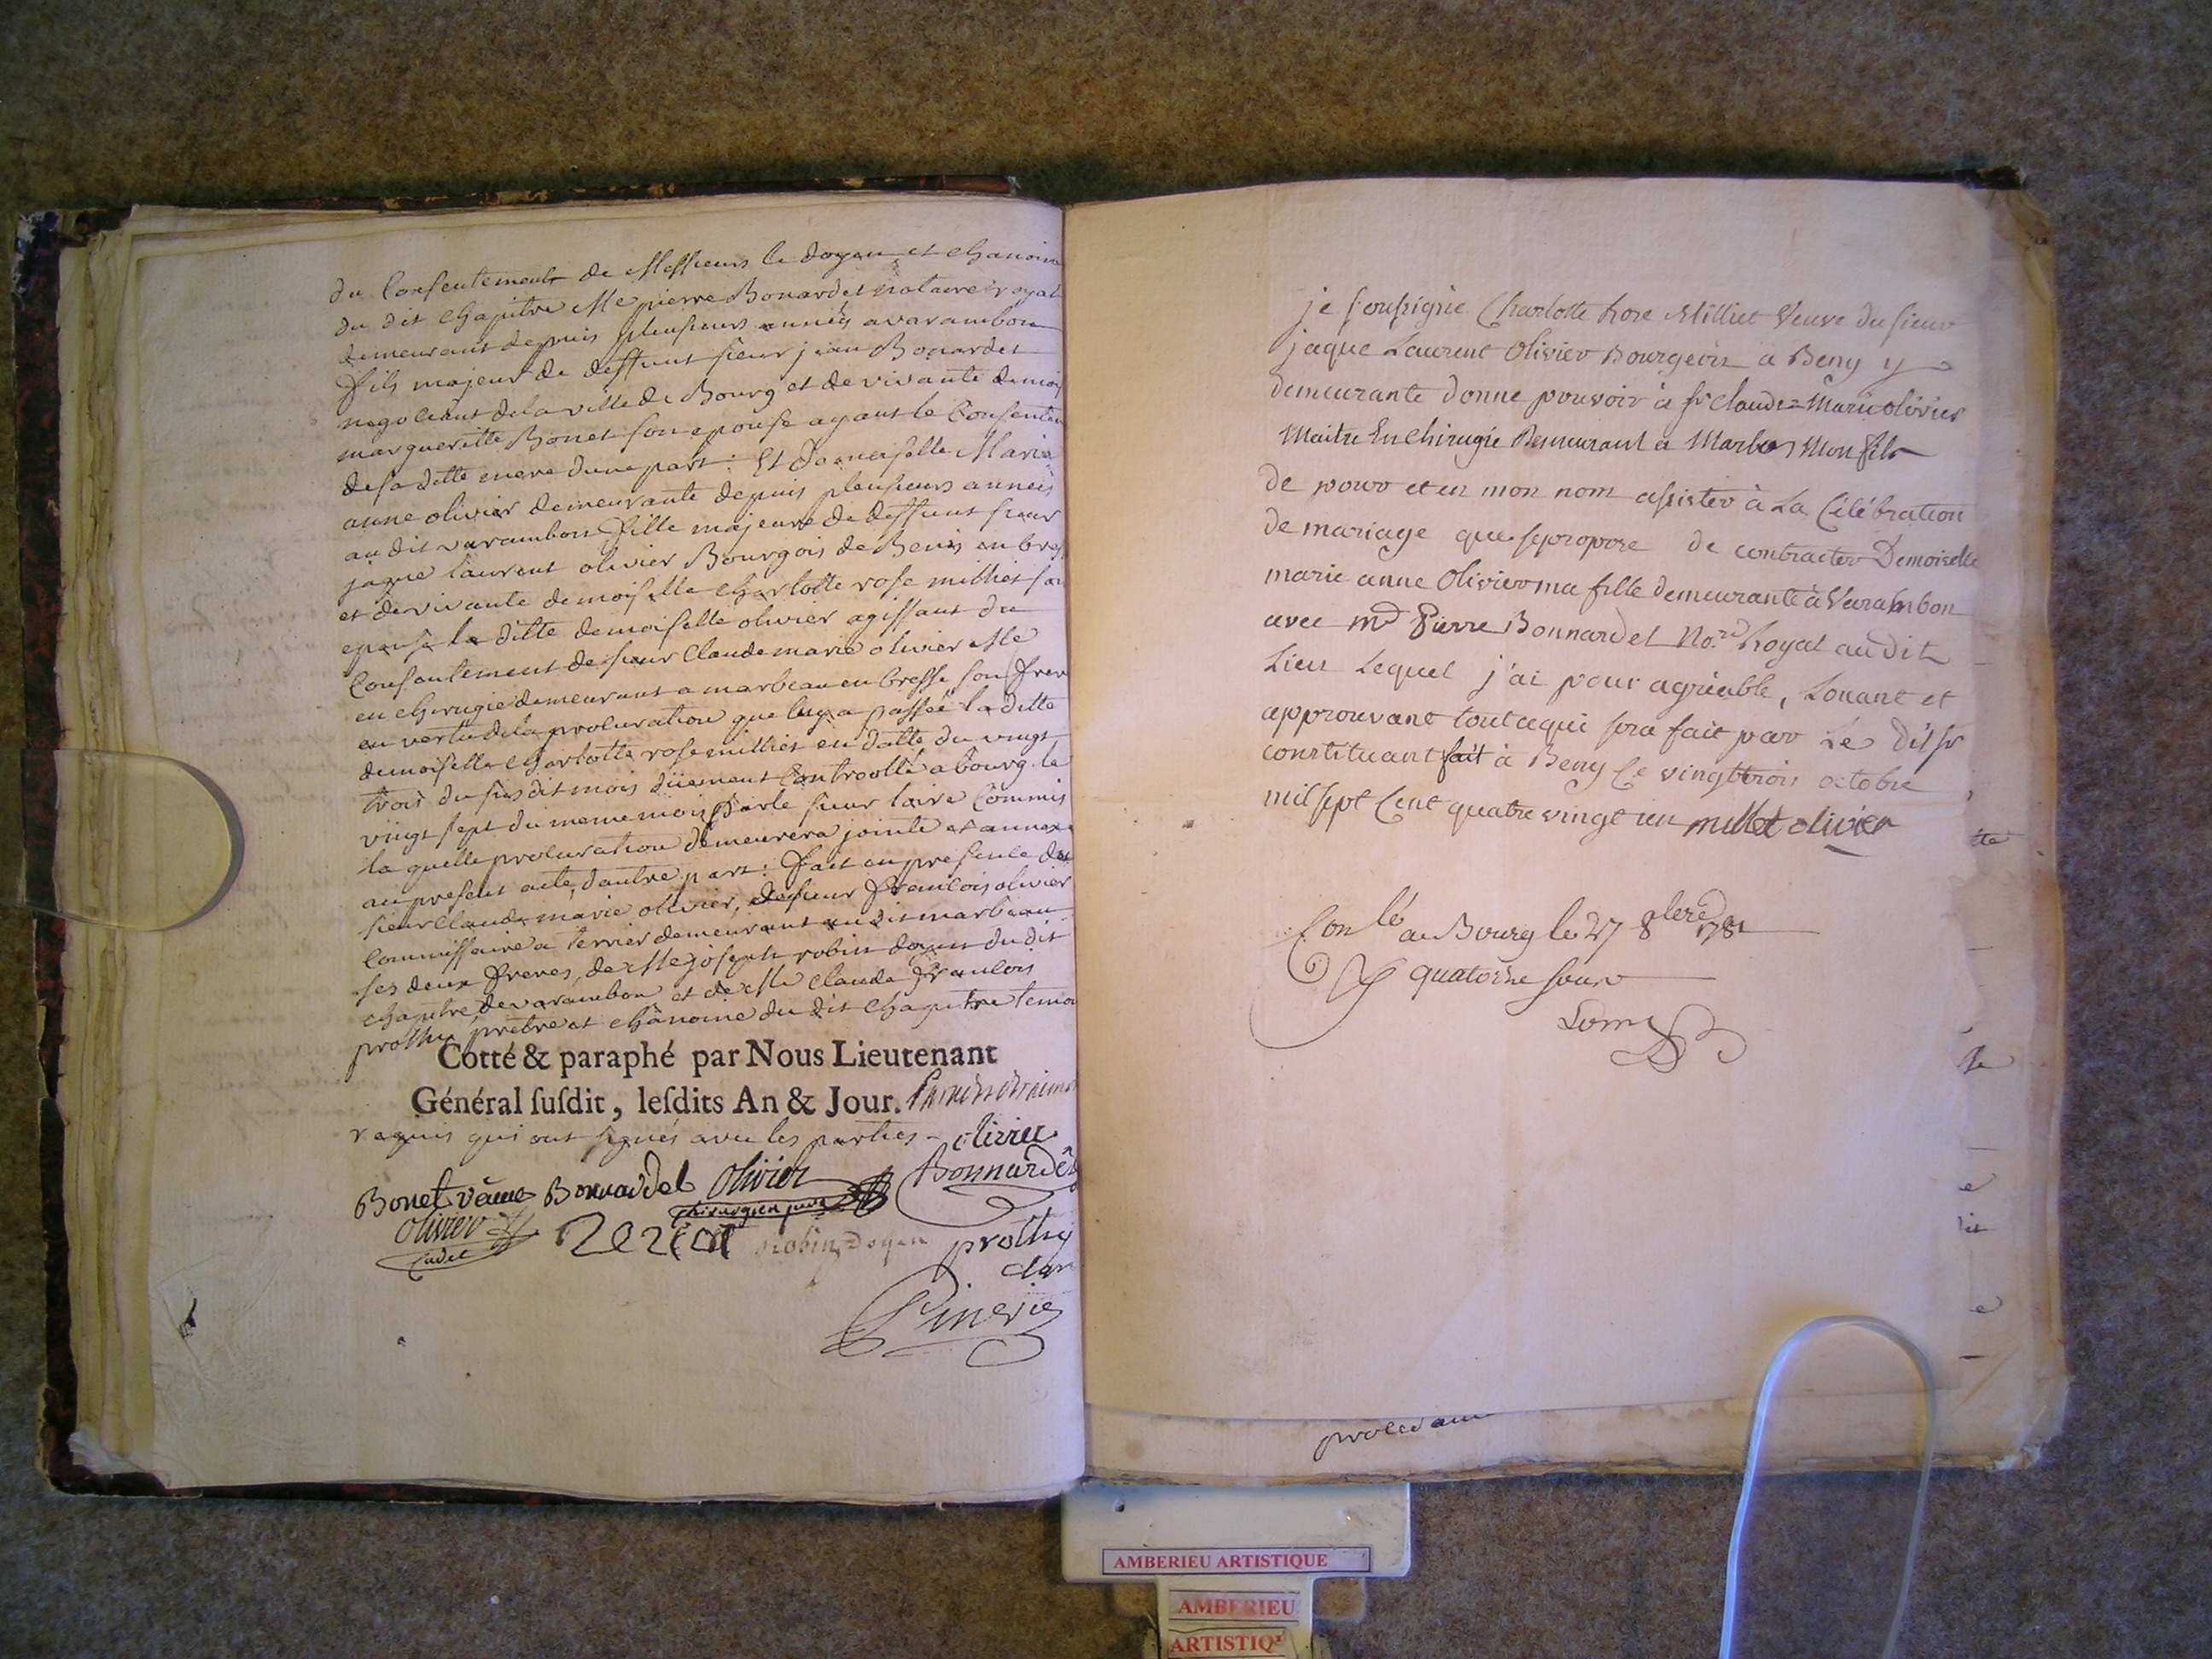 du Consentement de Messieurs le doyen et chanoine
du dit chapitre Me pierre Bonardet notaire royal
demeurant depuis plusieurs années a varambon
fils majeur de deffunt sieur jean Bonardet
negociant de la ville de Bourg et de vivante demois
margueritte Bonet son epouse ayant le Consentem
de sa ditte mere dune part : Et Damoiselle Marie
anne olivier demeurante depuis plusieurs années
au dit varambon fille majeure de deffunt sieur
jaque laurent olivier Bourgois de Beni en bres
et de vivante demoiselle charlotte rose milliet son
epouse la ditte demoiselle olivier agissant du
Consentement de sieur Claude marie olivier Me
en chirugie demeurant a marbeau en bresse son frere
en vertu de la procuration que luy a passée la ditte
demoiselle charlotte rose milliet en datte du vingt
trois du susdit mois düement Controollé a bourg le
vingt sept du meme mois par le sieur loire Commis
la quelle procuration demeurera jointe et annexe
au present acte, dautre part : fait en presence des
sieur Claude marie olivier, de sieur francois olivier
Commissaire a terrier demeurant au dit marbeau
ses deux freres, de Me joseph robin doyen du dit
chapitre de varambon et de Me Claude francois
prothy prêtre et chânoine du dit chapitre temoi
Cotté & paraphé par Nous Lieutenant
Général susdit, lesdits An & Jour.
requis qui ont signés avec les parties - olivier
Bonet veuve Bonnardel olivier Bonnardet
chirurgien juré
olivier cadet
robin Doyen prothy
chan
je soussigné Charlotte Rose Milliet Veuve du sieur
jaque Laurent Olivier Bourgeois a Beny y
demeurante donne pouvoir à sr Claude Marie olivier
Maitre En Chirugie Demeurant a Marbos Mon fils
de pour et en mon nom assister à La Célébration
de mariage que se propose de contracter Demoiselle
marie anne Olivier ma fille demeurante à Varambon
avec me Pierre Bonnardet No.re Royal au dit
Lieu Lequel j'ai pour agréable, Louant et
approuvant tout ce qui sera fait par Le dit sr
constituant fait à Beny Ce vingt trois octobre
mil sept Cent quatre vingt un millet olivier
Con lé a Bourg le 27 8bre 1781
quatorze sous